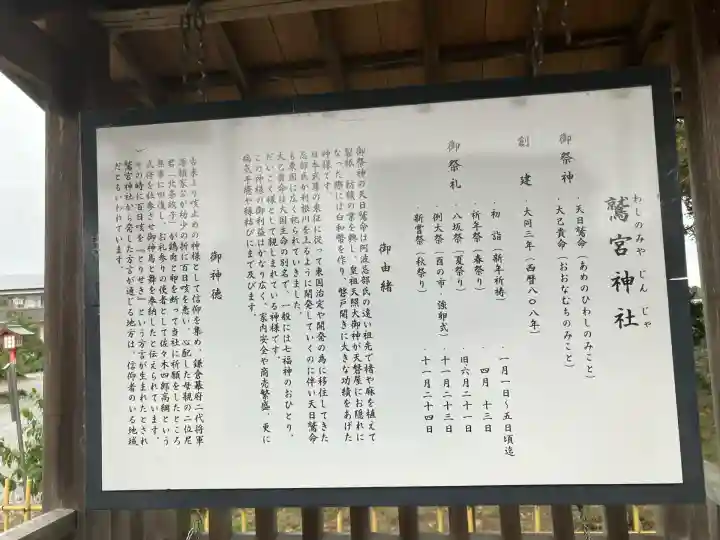 わしのみや じん じゃ
鷲宮神社
御祭神 ・天日鷲命(あめのひわしのみこと)
・大己貴命(おおなむちのみこと)
創建 ・大同三年(西暦八〇八年)
御祭礼 ・初詣(新年祈祷) ・一月一日~五日頃迄
・祈年祭(春祭) ・四月十三日
・八坂祭(夏祭) ・旧六月二十一日
・例大祭(酉の市・強卵式) ・十一月二十三日
・新嘗祭(秋祭り) ・十一月二十四日
御由緒
御祭神の天日鷲命は阿波忌部氏の遠い祖先で楮や麻を植えて
製紙・紡績の業を興し、皇祖天照大御神が天磐屋にお隠れに
なった際には白和幣を作り、磐戸開きに大きな功績をあげた
神様です。
日本武尊の東征に従って東国治定や開発の為に移住してきた
忌部氏が利根川を上るように開発していくのに伴い天日鷲命
も東国に広く祀られていきました。
大己貴命は大国主命の別名で、一般には七福神のおひとり、
だいこく様として親しまれている神様です。
この神様の御利益はかなり広く、家内安全や商売繁盛、更に
病気平癒や縁結びにまで及びます。
御神徳
古来より咳止めの神様として信仰を集め、鎌倉幕府二代将軍
源頼家公が幼少の折に百日咳を患い、心配した母親の二位尼
君(北条政子)が鶏肉と卵を断って当社に祈願をしたところ
無事に回復し、お礼参りの使者として佐々木四郎高綱という
武将を社参させ御神馬と舞を奉納したと伝えられています。
その時に百日咳を「とりせき」という方言が生まれたとされ
鷲宮神社から発した方言が通じる地方は、信仰者のいる地域
だともいわれています。